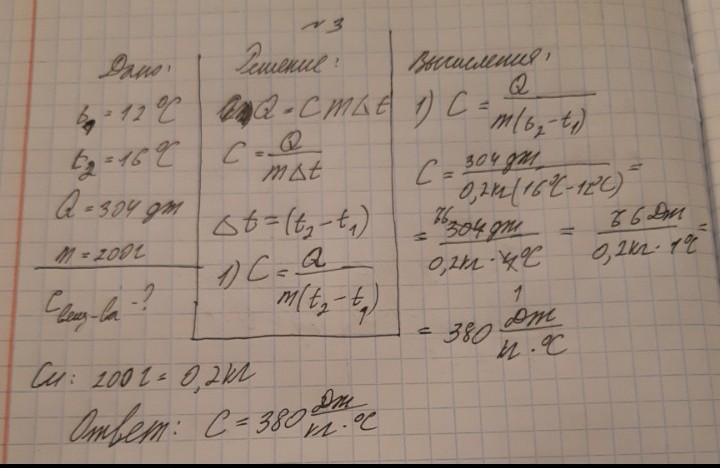 №3
Дано:
t₁ = 12 °C
t₂ = 16 °C
Q = 304 дж
m = 200г
Cвещ-ва - ?
Си: 200г = 0,2кг
Решение:
Q = C m Δt
C = Q / mΔt
Δt = (t₂ - t₁)
1) C = Q / m(t₂ - t₁)
Вычисления:
1) C = Q / m(t₂ - t₁)
C = 304 дж / 0,2кг(16°C - 12°C) =
= 76 304 дж / 0,2кг · 4°C 1 = 76 Дж / 0,2кг · 1°C =
= 380 Дж / кг · °C
Ответ: C = 380 Дж / кг · °C